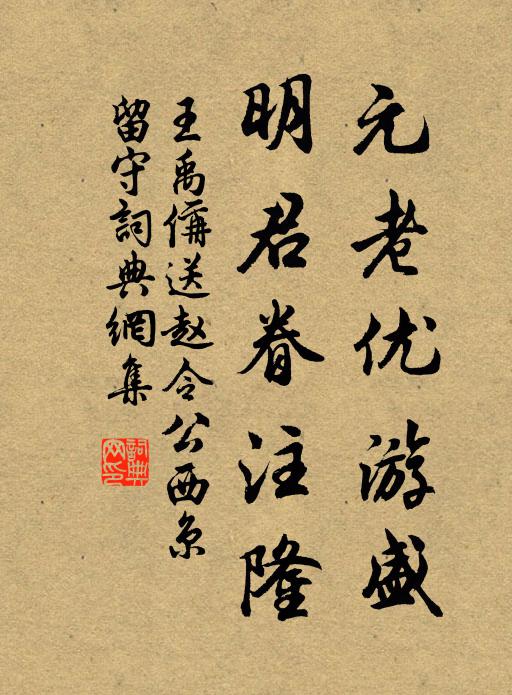 元老优游盛
明君眷注隆
王禹偁送赵令公西京
留守詞典網集
詞典
网印